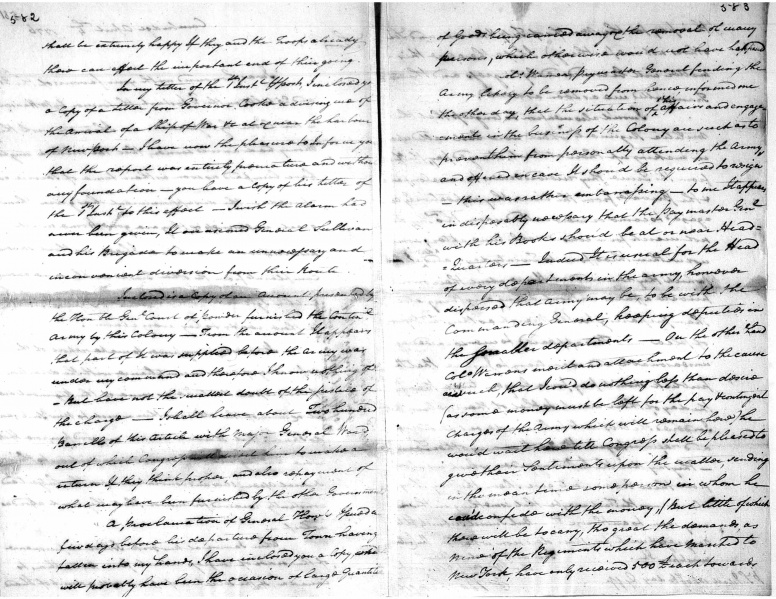 582
shall be extremely happy If they and the Troops already
there can effect the important end of their going
In my letter of the 1st Inst. I inclosed you
a Copy of a letter from Governor Cooke advising me of
the arrival of a Ship of War &c at or near the harbour
of New York — I have now the pleasure to Inform you
that the report was entirely premature and without
any foundation — you have a Copy of his letter of
the Inst. to this effect — I wish the alarm had
never been given, It occasioned General Sullivan
and his Brigade to make an unnecessary and
inconvenient diversion from their Route
Inclosed is a Copy of an Account presented by
the Honble Genl Court of powder furnished the Contin.l
Army by this Colony — From the account It appears
that part of It was supplied before the army was
under my command and therefore I know nothing of It
— But have not the smallest doubt of the justice of
the charge — I shall leave about Two hundred
Barrells of this Article with Majr General Ward
out of which Congress will make a
return If they think proper and also repayment of
what may have been furnished by the other Governmen
A Proclamation of General How's Issued a
few days before his departure from Town having
fallen into my hands, I have inclosed you a Copy which
will probably have been the occasion of large quantities
583
of Goods being carried away & the removal of many
persons, which otherwise would not have happened
Col. Warren Paymaster General finding the
Army likely to be removed from hence informed me
the other day that the situation of his affairs and engage
ments in the business of the Colony are such as to
prevent him from personally attending the Army
and offered in case It should be required to resign
— this was rather embarrassing — to me It appears
indispensably necessary that the Pay master Genl
with his Books should be at or near Head=
=Quarters — Indeed It is usual for the Head
of every department in the army, however
dispersed that Army may be, to be with the
Commanding General, keeping deputies in
the smaller departments — On the other hand
Colo Warrens merit and attachment to the cause
are such, that I could do nothing less than desire
(as some money must be left for the pay & contingent
charges of the Army which will remain here) he
would wait here till Congress shall be pleased to
give their Sentiments upon the matter, sending
in the mean time some person in whom he
could confide with the money, (But little of which
there will be to carry, tho great the demands, as
nine of the Regiments which have marched to
New York, have only received 500£ each towards